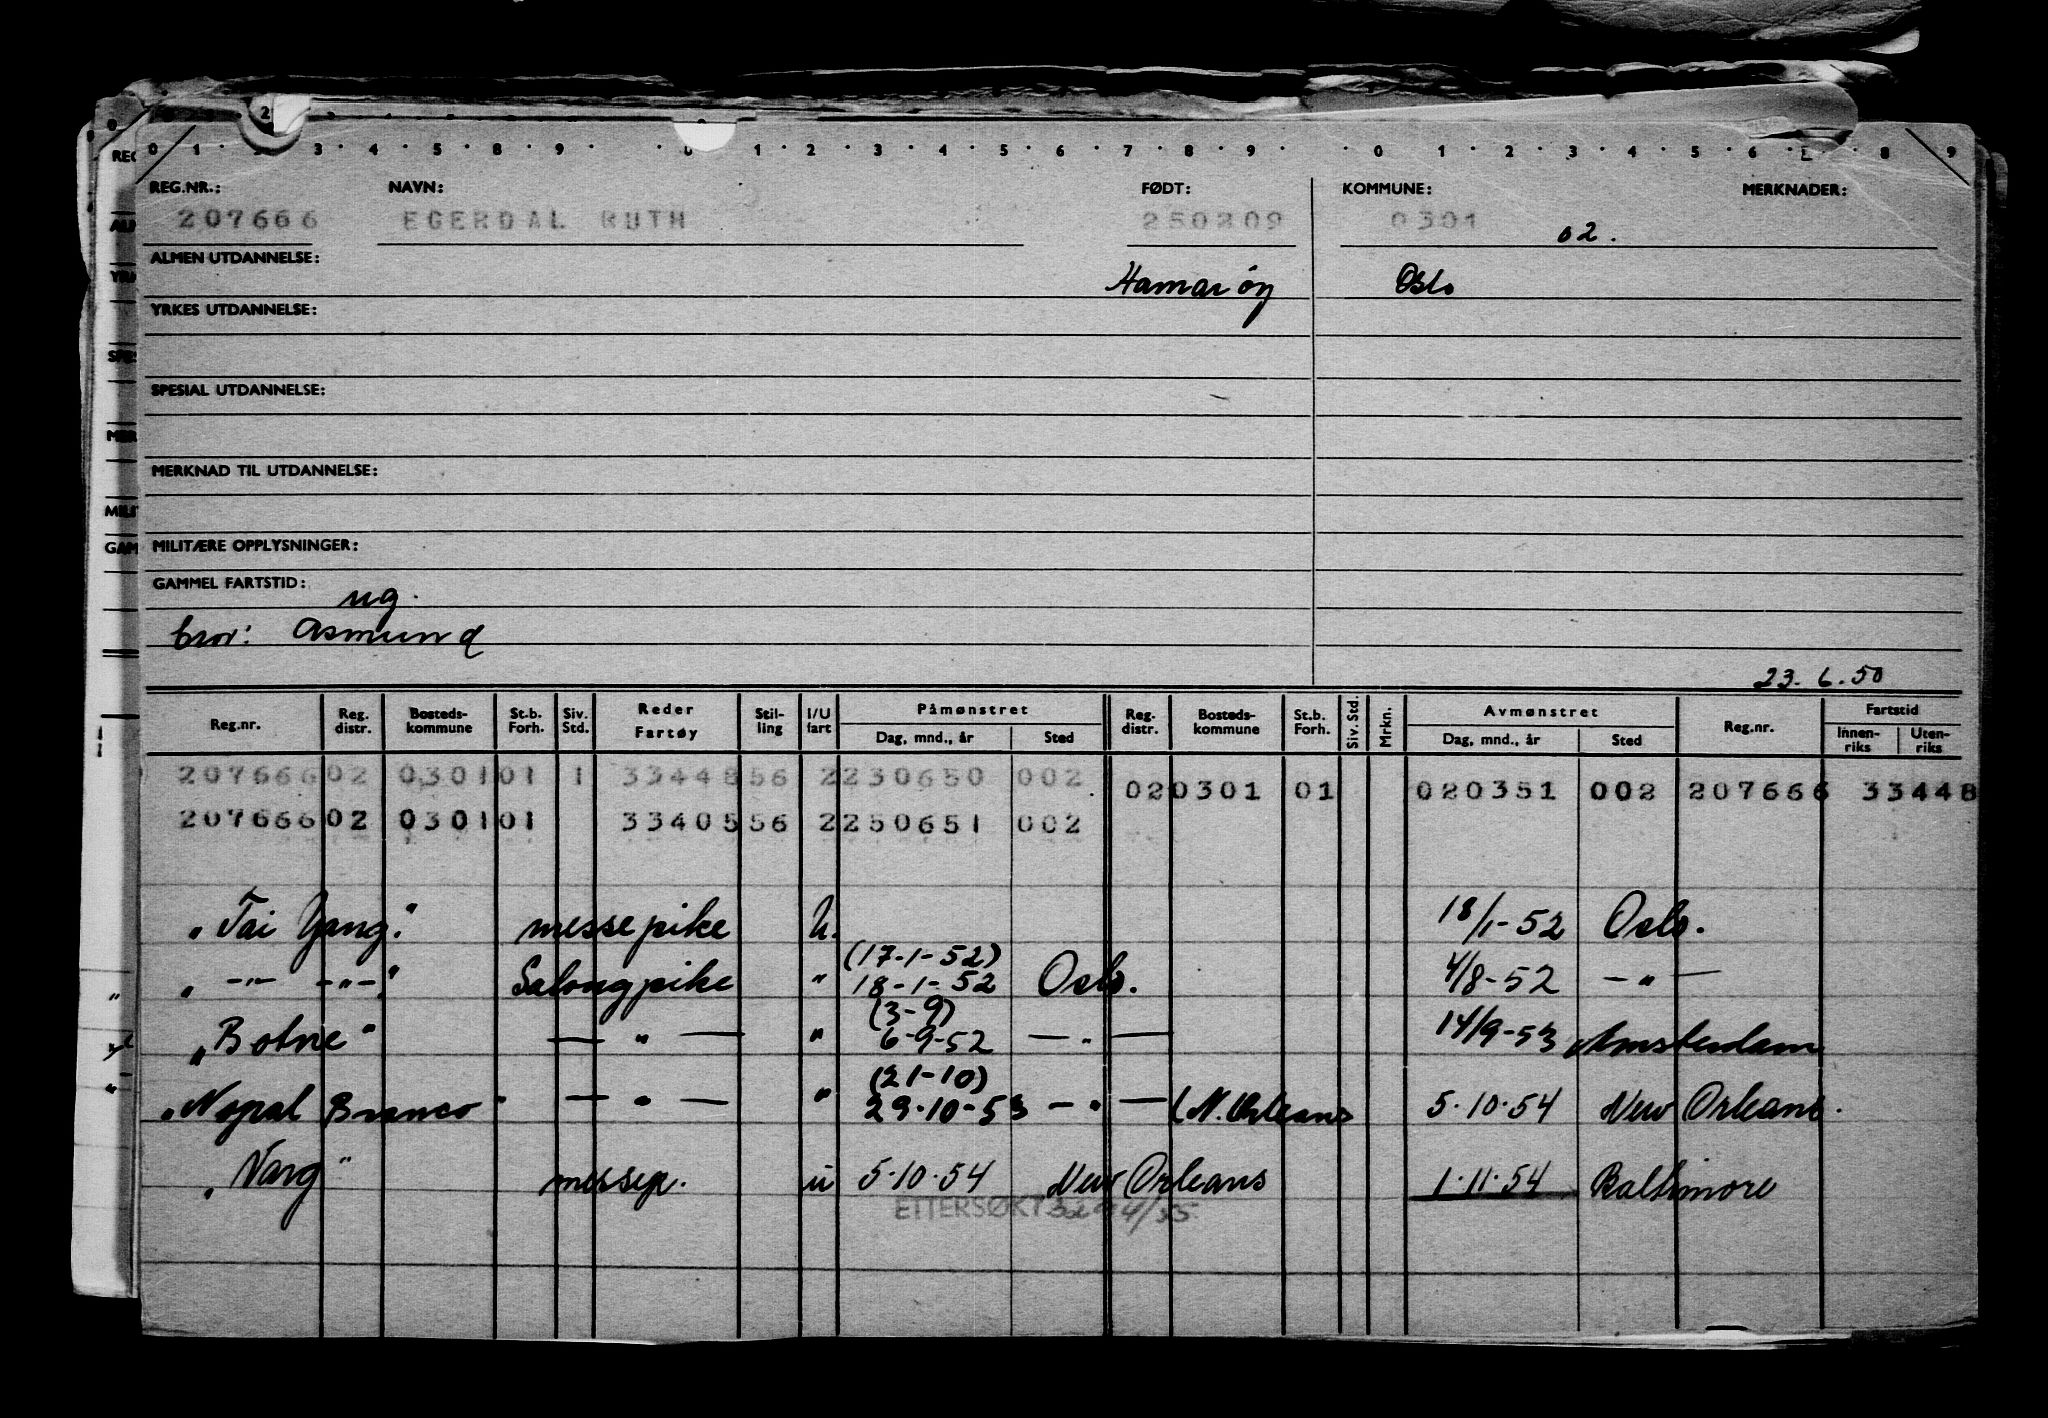 2
0 1 2 3 4 5 6 8 9 0 1 2 3 4 5 6 7 8 9 0 1 2 3 4 5 6 8 9
REG.NR.: NAVN: FØDT: KOMMUNE: MERKNADER:
207666 EGERDAL RUTH 250209 0301 02.
ALMEN UTDANNELSE: Hamarøy Oslo
YRKES UTDANNELSE:
SPESIAL UTDANNELSE:
MERKNAD TIL UTDANNELSE:
MILITÆRE OPPLYSNINGER:
GAMMEL FARTSTID:
ug.
bror: Asmund
23.6.50
Reg.nr. Reg. distr. Bosteds-kommune St.b. Forh. Siv. Std. Reder Fartøy Stil-ling I/U fart Påmønstret Dag, mnd., år Sted Reg. distr. Bosteds-kommune St.b. Forh. Siv. Std. Mrkn. Avmønstret Dag, mnd., år Sted Reg.nr. Fartstid Innen-riks Uten-riks
207666 02 0301 01 1 33448 56 2 230650 002 02 0301 01 020351 002 207666 33448
207666 02 0301 01 33405 56 2 250651 002
"Tai Yang". messepike U. 18/1-52 Oslo.
(17-1-52)
" -"- -"-" Salongpike " 18-1-52 Oslo. 4/8-52 -"-
(3-9)
"Botne" -"- " 6-9-52 -"- 14/9-53 Amsterdam
(21-10)
"Nopal Branco" -"- " 29-10-53 -"- (N. Orleans 5.10.54 New Orleans.
"Varg" messep. u 5.10.54 New Orleans 1.11.54 Baltimore
ETTERSØKT